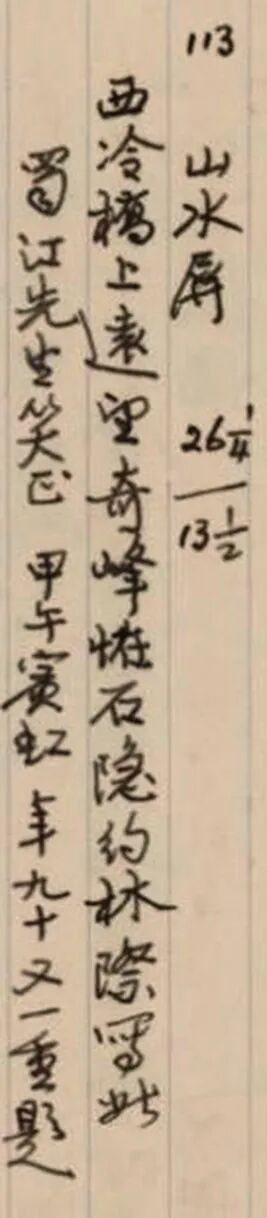 113
山水屏 26 1/4 / 13 1/2
西冷橋上遠望奇峰怪石隐约林際写此
蜀江先生笑正 甲午賓虹年九十又一重题